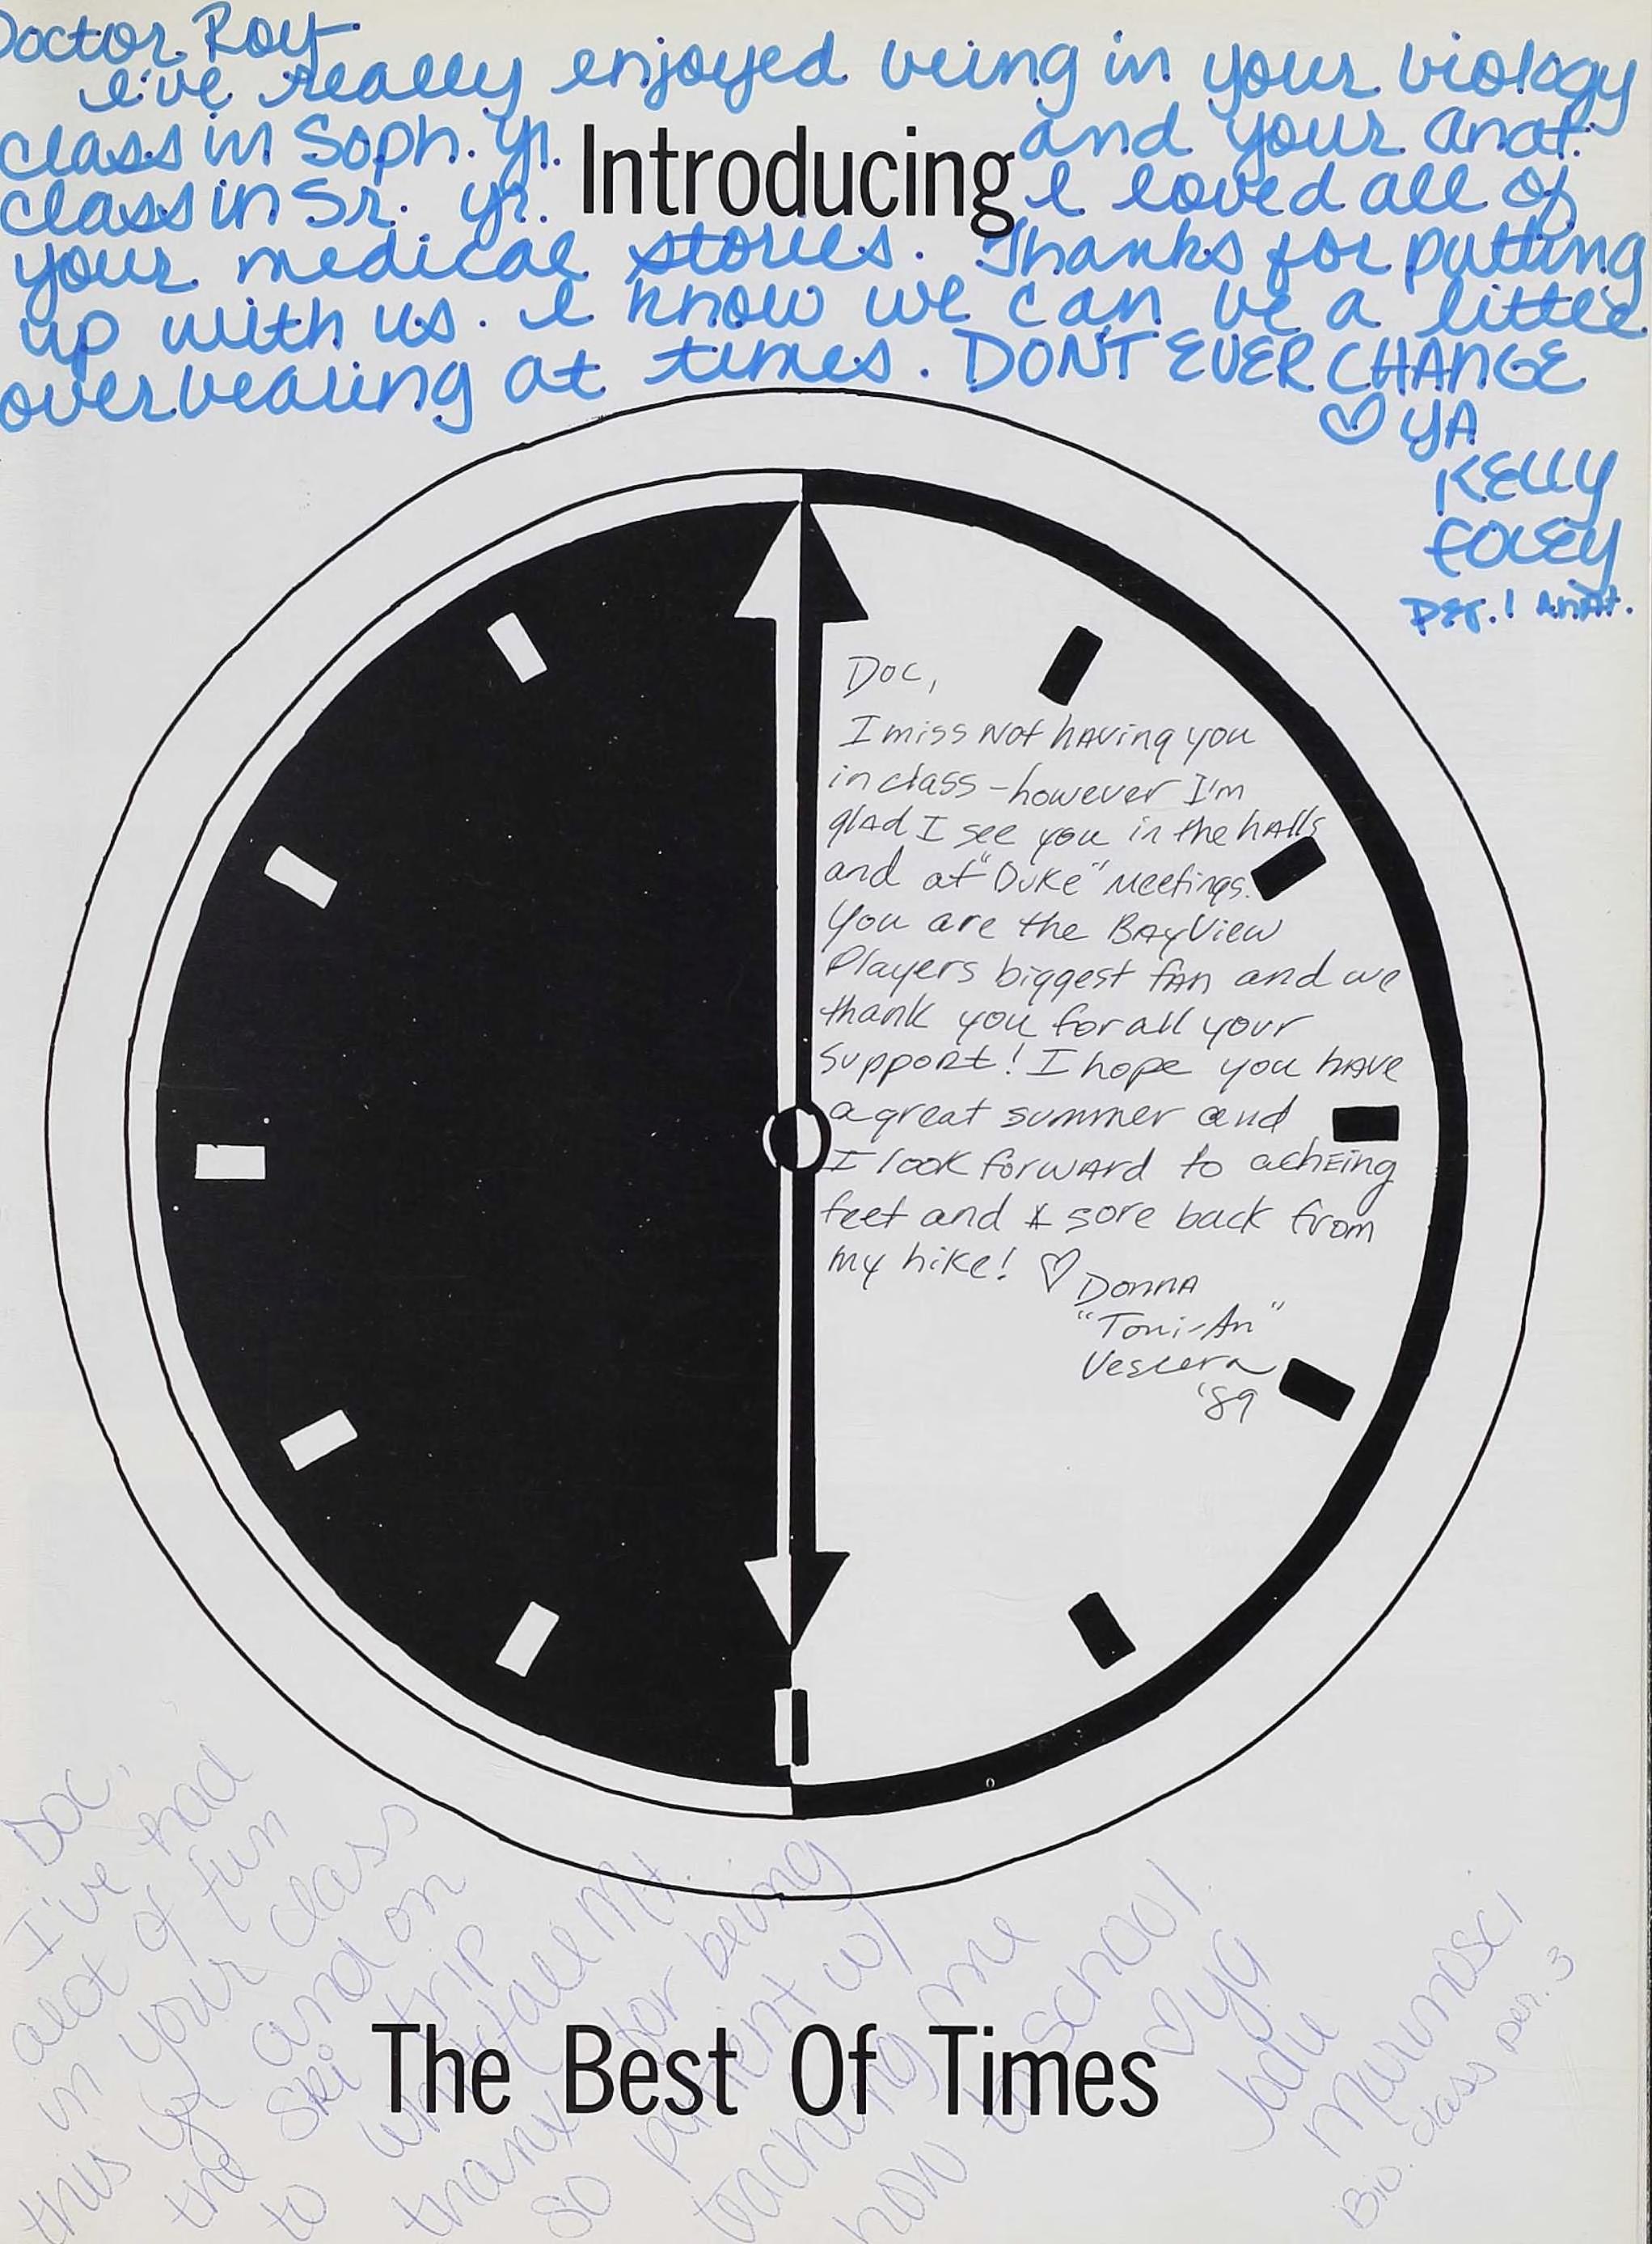 Doctor Roy
I've really enjoyed being in your biology
class in Soph. yr. and your anat.
class in Sr. yr. I loved all of
your medical stories. Thanks for putting
up with us. I know we can be a little
overbearing at times. DON'T EVER CHANGE
♡ YA
KELLY
FOLEY
Per. 1 Anat.
Introducing
Doc,
I miss not having you
in class - however I'm
glad I see you in the halls
and at "Duke" meetings.
You are the BayView
Players biggest fan and we
thank you for all your
support! I hope you have
a great summer and
I look forward to acheing
feet and a sore back from
my hike! ♡ Donna
"Toni-An"
Vescera
'89
Doc,
I've had
alot of fun
in your class
this yr and on
the ski trip
to Whiteface Mt.
thanx for being
so patient w/
teaching me
how to school
♡ ya
Jodie
Bio. class per. 3
The Best Of Times